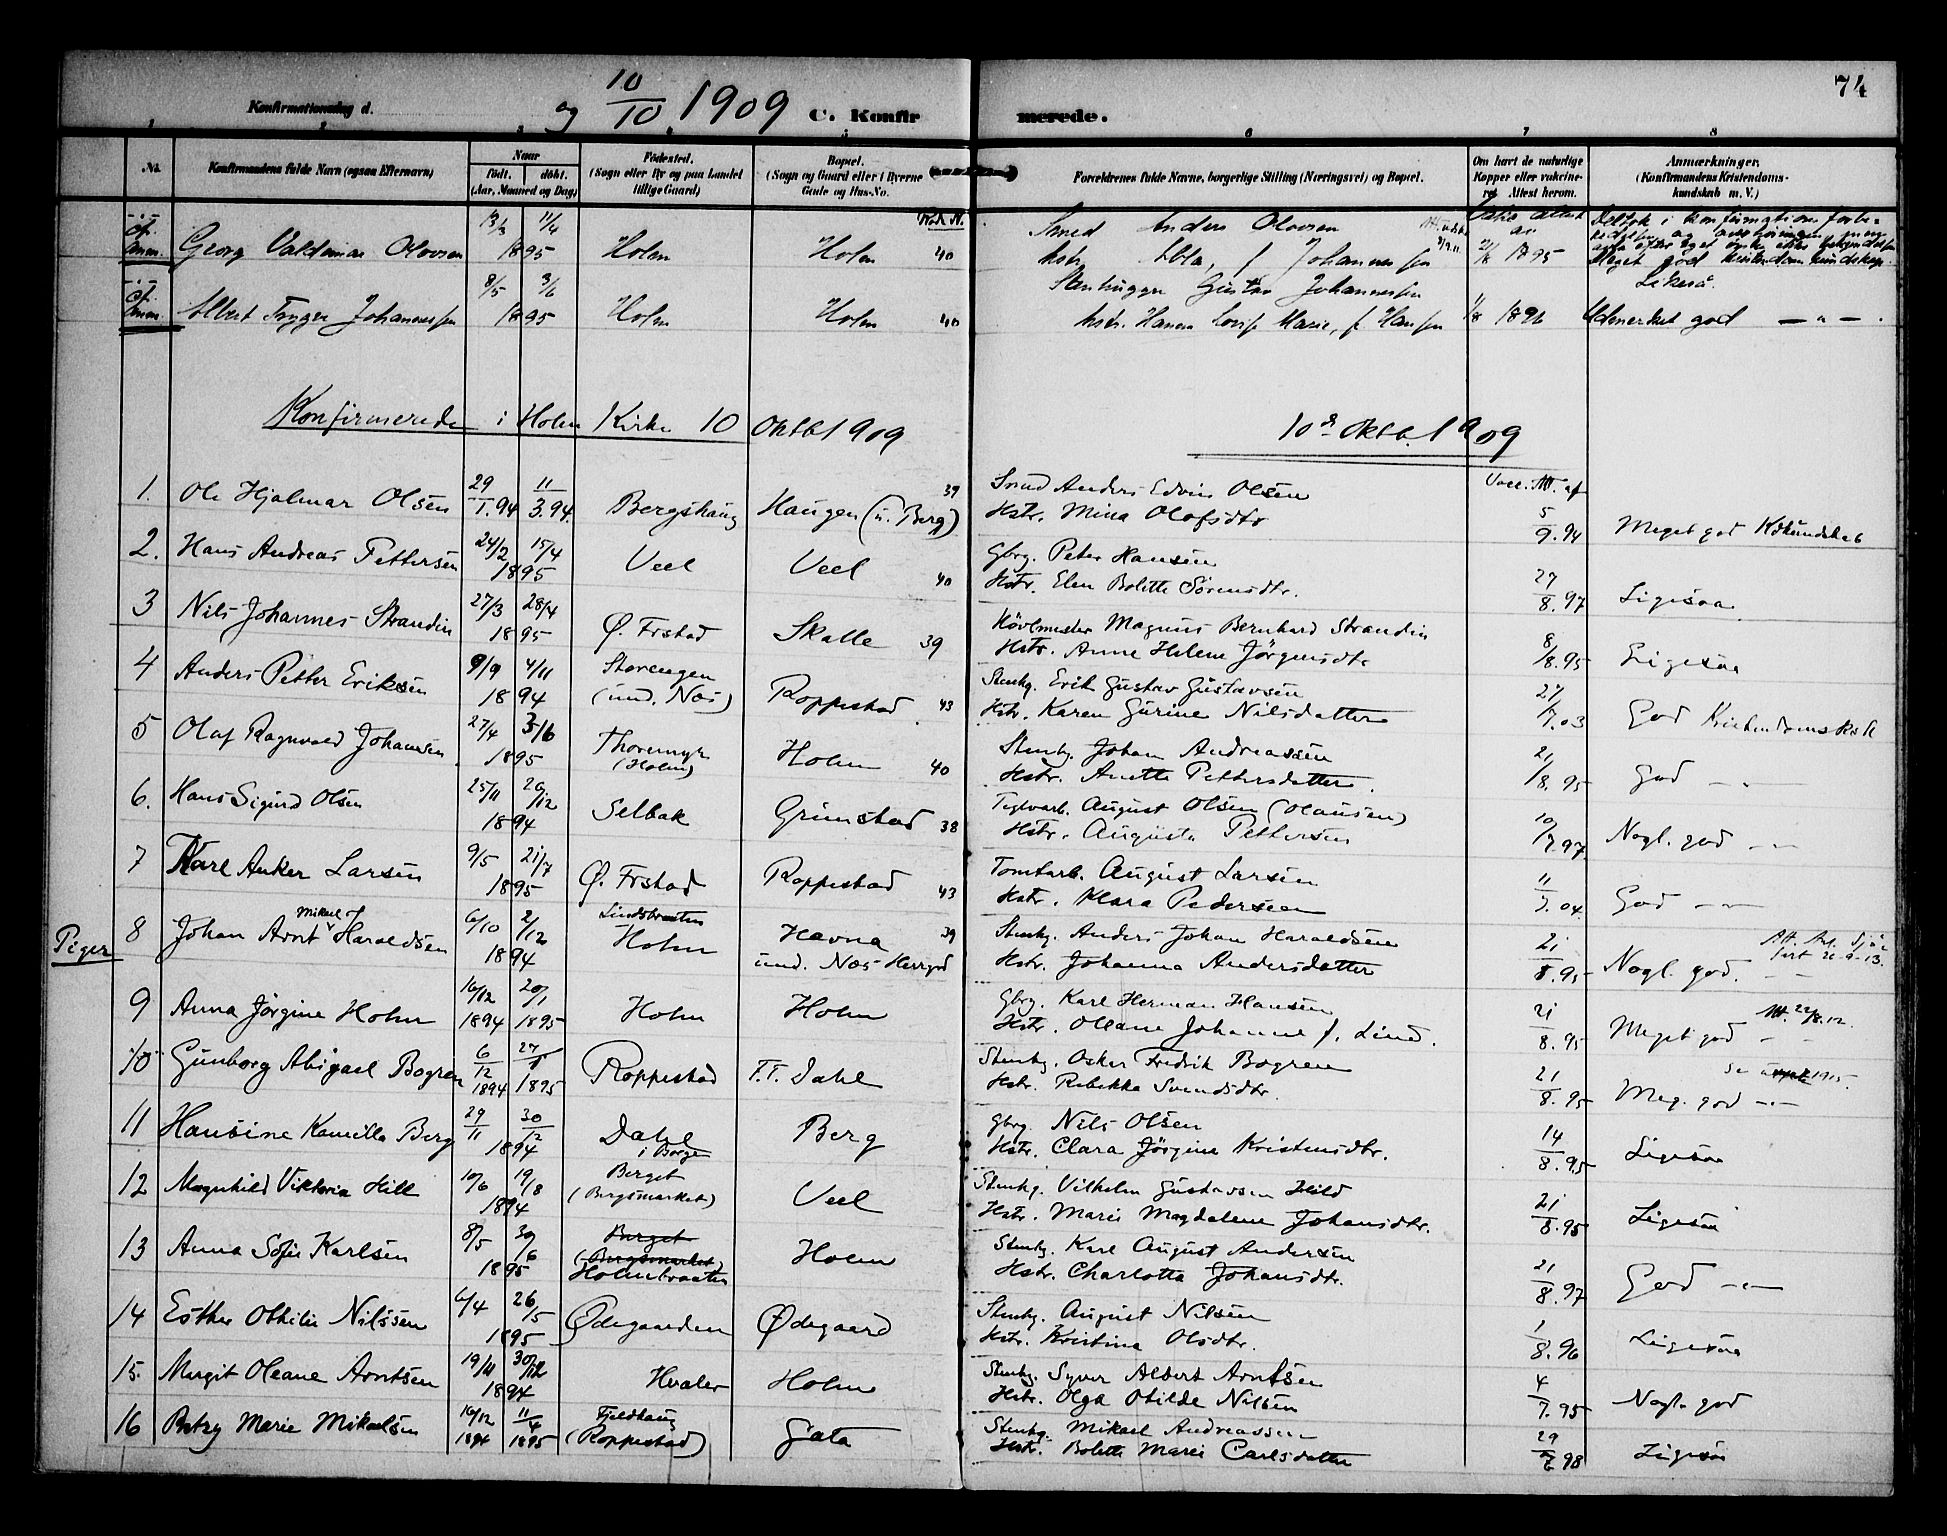 74
Konfirmationsdag d. og 10/10 1909 C. Konfirmerede.
No. Konfirmandens fulde Navn (ogsaa Efternavn) Naar födt. döbt. (Aar, Maaned og Dag) Födested. (Sogn eller By og paa Landet tillige Gaard) Bopæl. (Sogn og Gaard eller i Byerne Gade og Hus-No. Forældrenes fulde Navne, borgerlige Stilling (Næringsvei) og Bopæl. Om havt de naturlige Kopper eller vaccineret Attest herom. Anmærkninger. (Konfirmandens Kristendomskundskab m. V.)
Georg Valdemar Olavsen 13/3 11/4 1895 Holm Holm 40 Smed Anders Olavsen
Hstr. f. Johannessen 21/8 1895 Meget god kristendomskundskap.
Albert Trygve Johannessen 8/5 3/6 1895 Holm Holm 40 Stenhugger Gustav Johannessen Likeså.
Hstr. Hanna Lovise Marie, f. Hansen 1/8 1896 Udmerket god — " —
Konfirmerede i Holm Kirke 10 Oktb 1909 10de Oktb. 1909
1. Ole Hjalmar Olsen 29/1.94 11/3.94. Bergshaug Haugen (u. Berg) 39 Smed Anders Edvin Olsen Vacc. Att. af
Hstr. Mina Olafsdtr 5/9.94 Meget god Kdkundskab
2. Hans Andreas Pettersen 24/2 15/4 1895 Veel Veel 40 Gbrg. Peter Hansen
Hstr. Elen Bolette Sörensdtr. 27/8.97 Ligesaa
3 Nils Johannes Strandin 27/3 28/4 1895 Ø. Frstad Skalle 39 Hövlmester Magnus Bernhard Strandin
Hstr. Anne Helene Jörgensdtr 8/8.95 Ligesaa
4 Anders Petter Eriksen 9/9 4/11 1894 Storengen (und. Næs) Roppestad 43 Stenhg. Erik Gustav Gustavsen
Hstr. Karen Gurine Nilsdatter 27/7.03 God Kristendomsksk
5 Olaf Ragnvald Johansen 27/4 3/6 1895 Thoremyr (Holm) Holm 40 Stenhg. Johan Andreassen
Hstr. Anette Pettersdatter. 21/8.95 God — " —
6. Hans Sigurd Olsen 25/11 26/12 1894 Selbak Grimstad 38 Teglvarb. August Olsen (Olausen)
Hstr. Augusta Pettersen 10/7.97 Nogl. god — " —
7 Karl Anker Larsen 9/5 21/7 1895 Ø. Frstad Roppestad 43 Tomtarb. August Larsen
Hstr. Klara Pedersen 11/7.04 God — " —
8 Johan Arnt Mikael Haraldsen 6/10 2/12 1894 Holm Havna und. Næs Herrgd 39 Stenhg. Anders Johan Haraldsen
Hstr. Johanna Andersdatter 21/8.95 Nogl. god.
Piger
9 Anna Jörgine Holm 16/12 1894 20/1 1895 Holm Holm Gbrg. Karl Herman Hansen
Hstr. Oleane Johanne f. Lind. 21/8.95 Meget god Att. 22/8.12.
10 Gunborg Abigael Bogren 6/12 1894 1895 Roppestad T.T. Dahl Stenhg. Oskar Fredrik Bogren
Hstr. Rebekka Svendsdtr. 21/8.95 Meg. god — " —
11 Hansine Kamilla Berg 29/11 30/12 1894 Dahl i Borge Berg Gbrg. Nils Olsen
Hstr. Clara Jörgine Kristensdtr. 14/8.95 Ligesaa
12 Magnhild Viktoria Hill 10/6 19/8 1894 Berget (Bergsmarken) Veel Stenhg. Vilhelm Gustavsen Hild
Hstr. Marie Magdalene Johansdtr. 21/8.95 Ligesaa
13 Anna Sofie Karlsen 8/5 30/6 1895 Berget (Bergsmarket) Holmbraaten Holm Stenhg. Karl August Andersen
Hstr. Charlotta Johansdtr. 21/8.97 God — " —
14 Esther Othilie Nilssen 6/4 26/5 1895 Ødegaarden Ødegaard Stenhg. August Nilsen
Hstr. Kristina Olsdtr. 1/8.96 Ligesaa
15. Margit Oleane Arntsen 19/11 30/12 1894 Hvaler Holm Stenhg. Syver Albert Arntsen
Hstr. Olga Otilde Nilsen 4/7.95 Nogl. god
16 Betzy Marie Mikalsen 16/12 1894 11/4 1895 Fjeldhaug (Roppestad) Gata Stenhg. Mikael Andreassen
Hstr. Bolette Marie Carlsdatter 29 98 Ligesaa